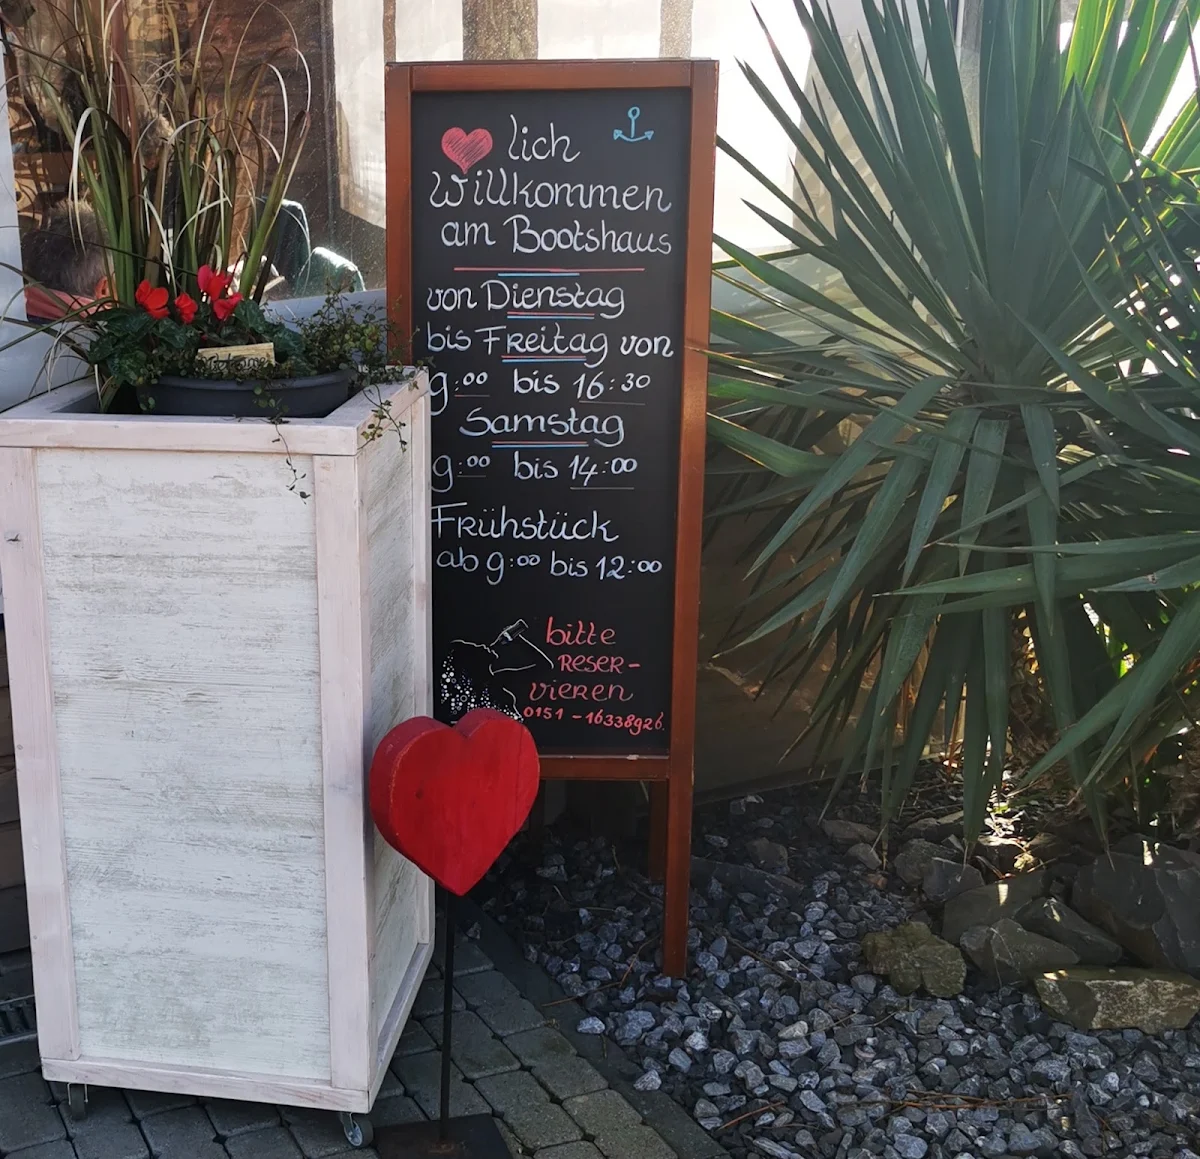 lich
Willkommen
am Bootshaus
von Dienstag
bis Freitag von
9:00 bis 16:30
Samstag
9:00 bis 14:00
Frühstück
ab 9:00 bis 12:00
bitte
RESER-
VIEREN
0151 - 16338926